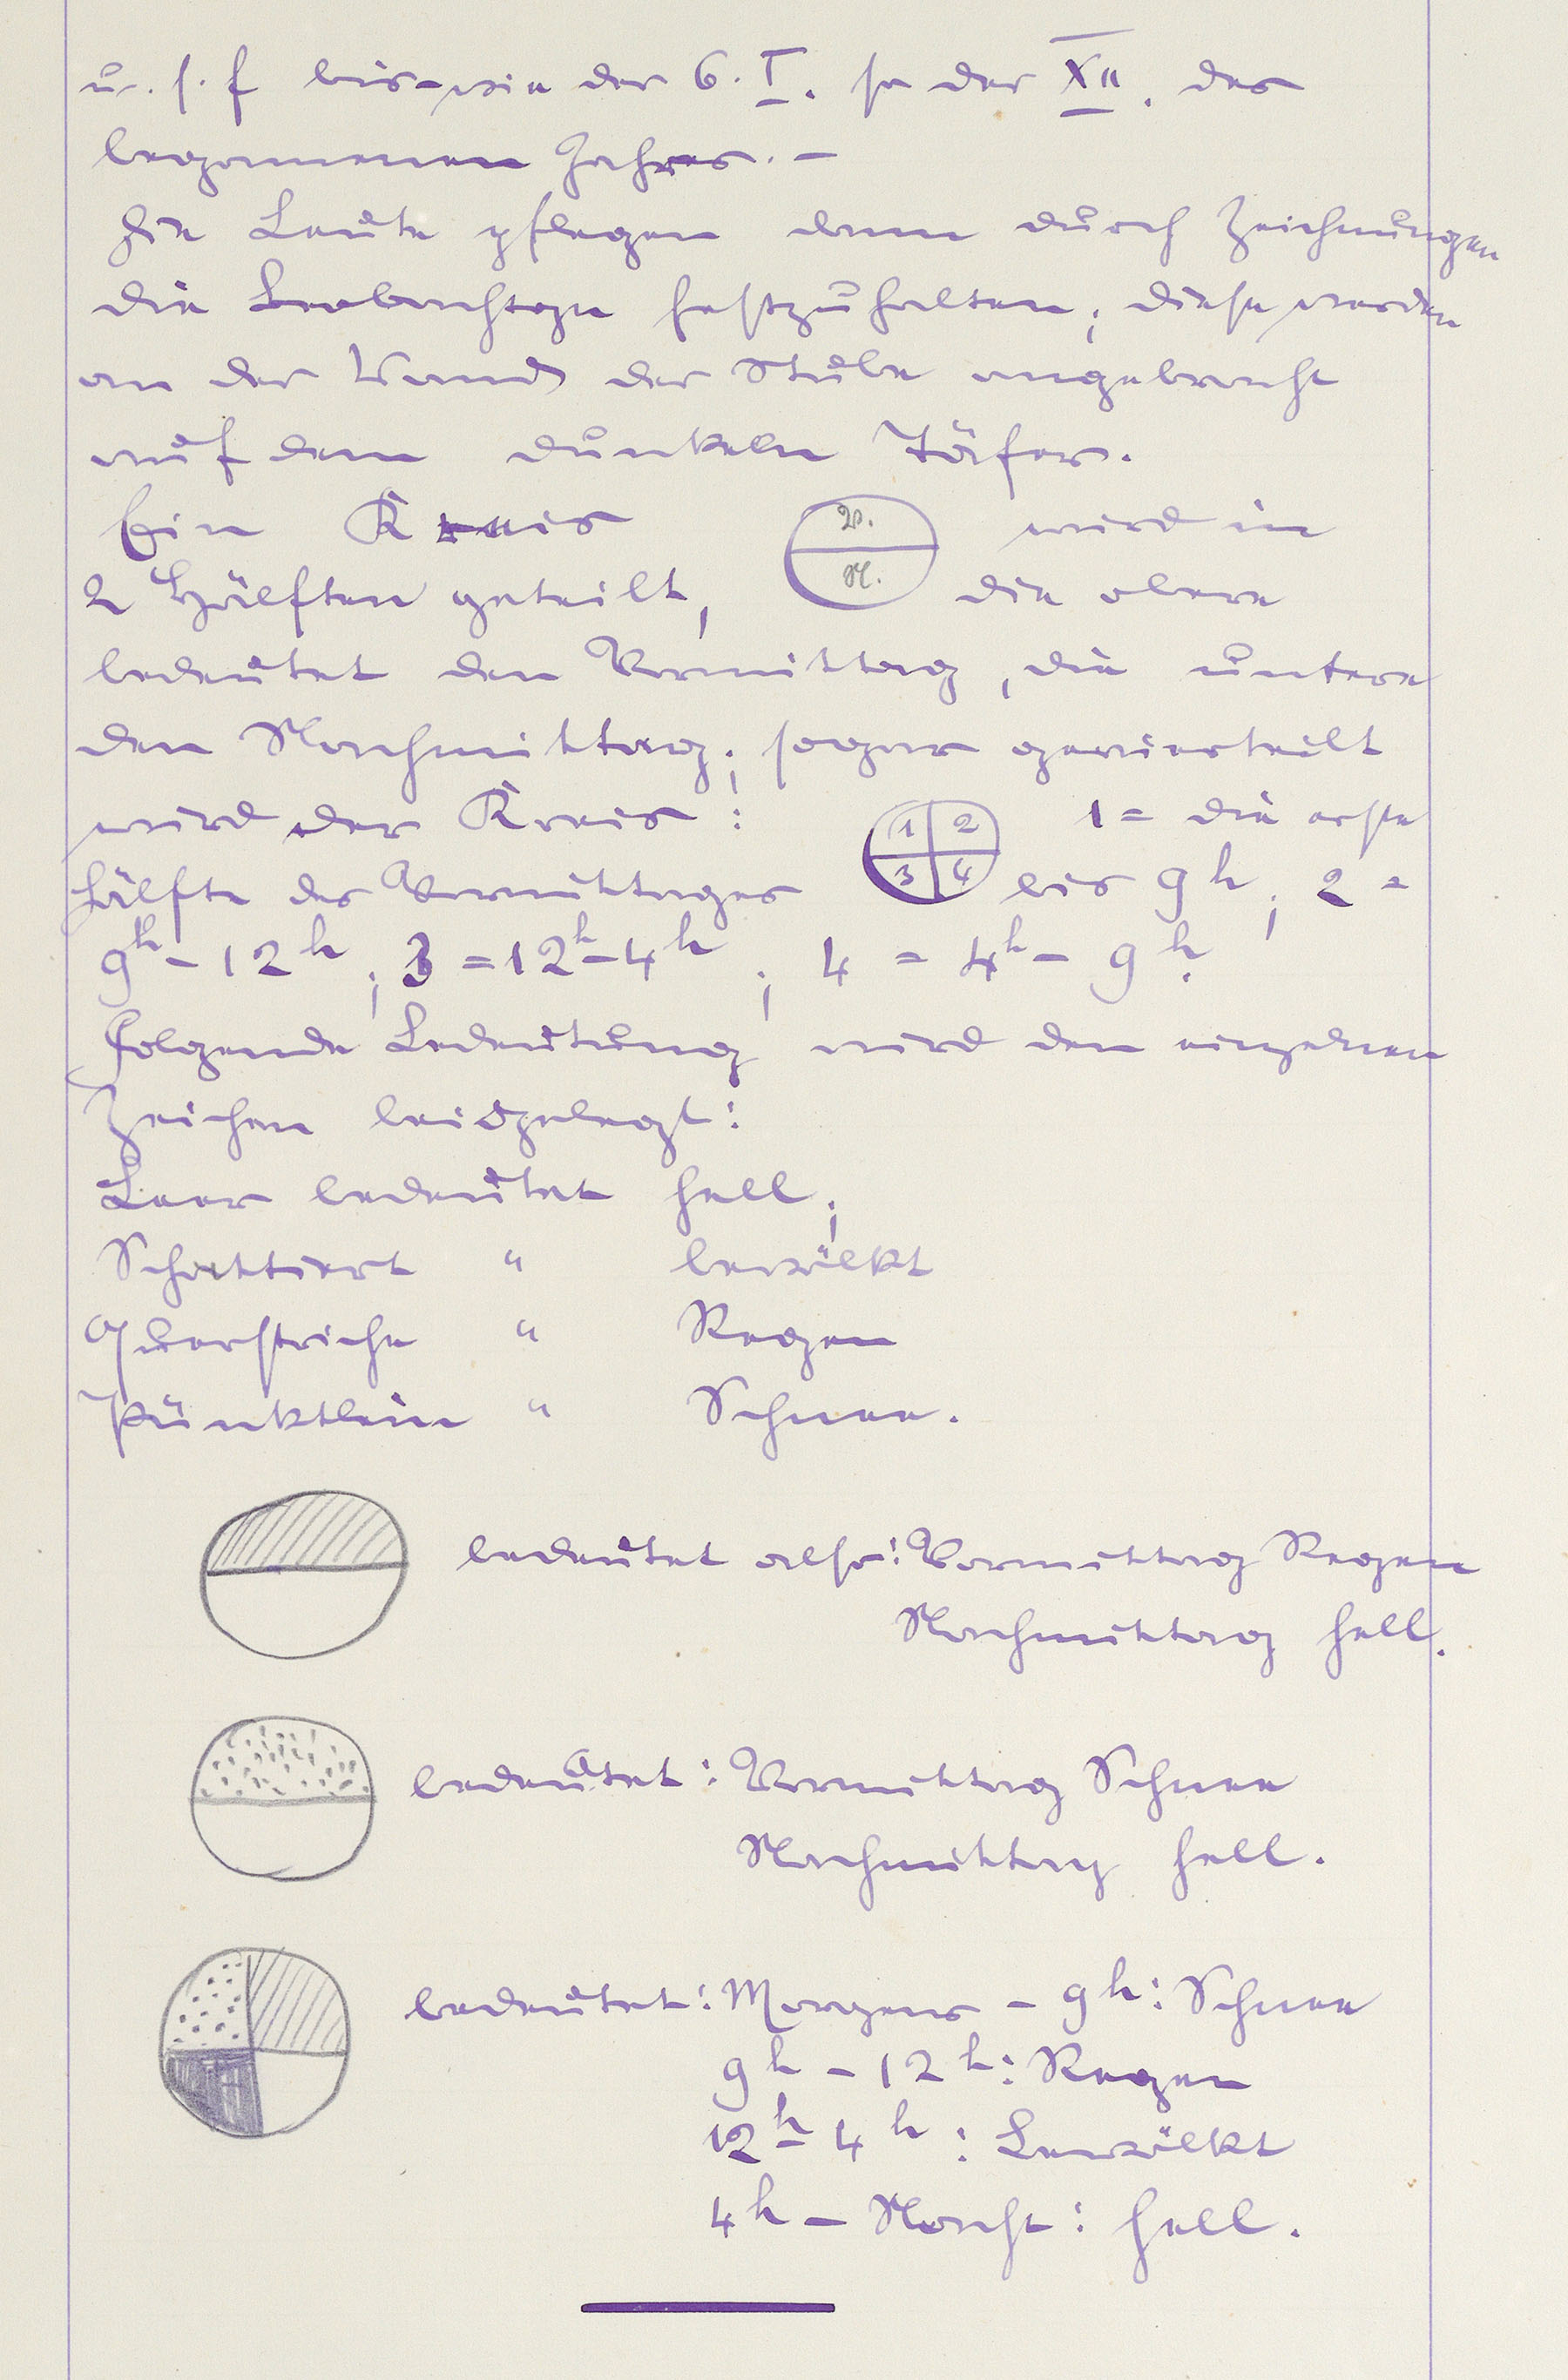 u. s. f bis wie der 6. I. so der XII. des
begonnenen Jahres. –
Die Leute pflegen dann durch Zeichnungen
die Beobachtgn festzuhalten; diese werden
an der Wand der Stube angebracht
auf dem dunkeln Täfer.
Ein Kreis V. N. wird in
2 Hälften geteilt, die obere
bedeutet den Vormittag, die untere
den Nachmittag; sogar gevierteilt
wird der Kreis: 1 2 3 4 1 = die erste
Hälfte des Vormittages bis 9h; 2 =
9h – 12h; 3 = 12h – 4h; 4 = 4h – 9h.
Folgende Bedeutung wird den einzelnen
Zeichen beigelegt:
Leer bedeutet hell;
Schattiert " bewölkt
Querstriche " Regen
Pünktlein " Schnee.
bedeutet also: Vormittag Regen
Nachmittag hell.
bedeutet: Vormittag Schnee
Nachmittag hell.
bedeutet: Morgens – 9h: Schnee
9h – 12h: Regen
12h – 4h: Bewölkt
4h – Nacht: hell.